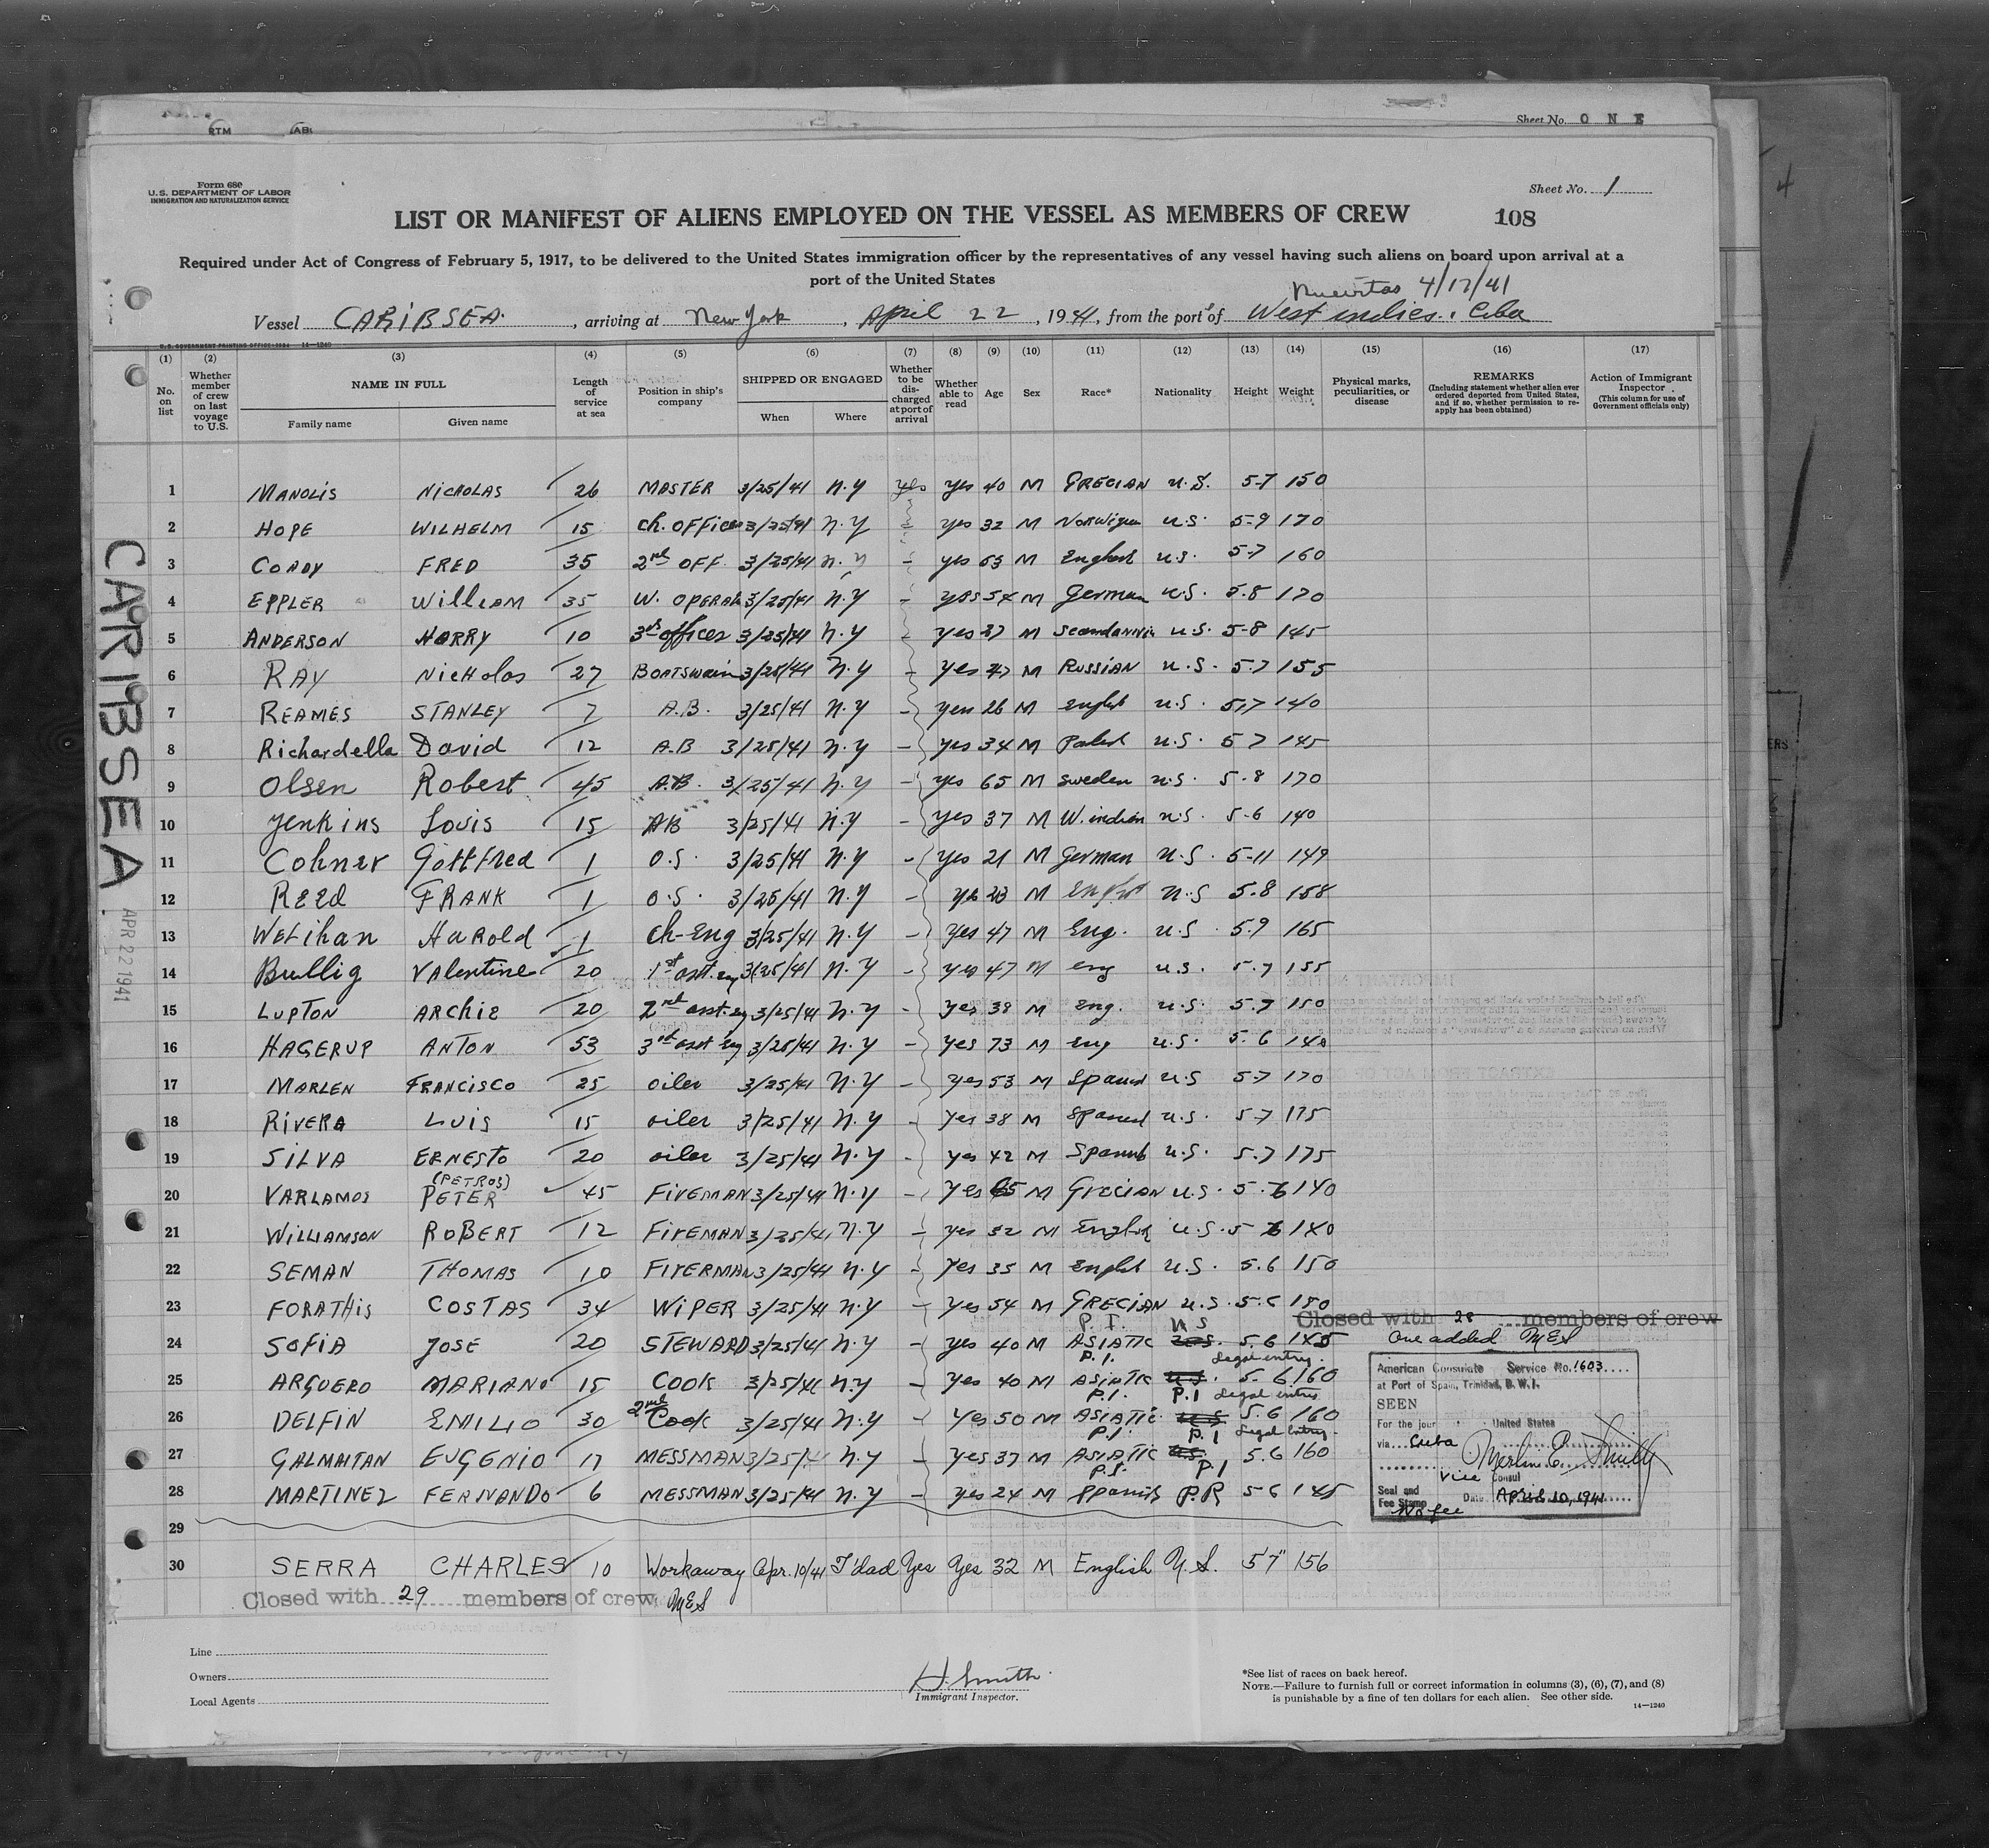 RTM
Sheet No. O N E
Form 680
U.S. DEPARTMENT OF LABOR
IMMIGRATION AND NATURALIZATION SERVICE
Sheet No. 1
LIST OR MANIFEST OF ALIENS EMPLOYED ON THE VESSEL AS MEMBERS OF CREW
108
Required under Act of Congress of February 5, 1917, to be delivered to the United States immigration officer by the representatives of any vessel having such aliens on board upon arrival at a
port of the United States
Nuevitas 4/17/41
Vessel CARIBSEA, arriving at New York, April 22, 1941, from the port of West indies. Cuba
(1) (2) (3) (4) (5) (6) (7) (8) (9) (10) (11) (12) (13) (14) (15) (16) (17)
No. on list
Whether member of crew on last voyage to U.S.
NAME IN FULL
Family name
Given name
Length of service at sea
Position in ship's company
SHIPPED OR ENGAGED
When
Where
Whether to be discharged at port of arrival
Whether able to read
Age
Sex
Race*
Nationality
Height
Weight
Physical marks, peculiarities, or disease
REMARKS
(Including statement whether alien ever ordered deported from United States, and if so, whether permission to reapply has been obtained)
Action of Immigrant Inspector
(This column for use of Government officials only)
1 MANOLIS NICHOLAS 26 MASTER 3/25/41 N.Y yes yes 40 M GRECIAN U.S. 5-7 150
2 HOPE WILHELM 15 Ch. OFFicer 3/25/41 N.Y yes 32 M Norwigen U.S. 5-9 170
3 CORDY FRED 35 2nd OFF. 3/25/41 N.Y - yes 63 M English U.S. 5-7 160
4 EPPLER William 35 W. OPERAt 3/25/41 N.Y - yes 54 M German U.S. 5.8 170
5 ANDERSON HARRY 10 3rd officer 3/25/41 N.Y yes 37 M Scandanvi U.S. 5-8 145
6 RAY NicHolas 27 Boatswain 3/25/41 N.Y - yes 47 M RUSSIAN U.S. 5.7 155
7 REAMES STANLEY 7 A.B. 3/25/41 N.Y - yes 26 M englsh U.S. 5,7 140
8 Richardella David 12 A.B 3/25/41 N.Y - yes 34 M U.S. 5 7 145
9 Olsen Robert 45 A.B. 3/25/41 N.Y - yes 65 M Sweden U.S. 5.8 170
10 Jenkins Louis 15 AB 3/25/41 N.Y - yes 37 M W.indian U.S. 5-6 140
11 Cohner Gottfred 1 O.S. 3/25/41 N.Y - yes 21 M German U.S. 5-11 149
12 REEd FRANK 1 O.S. 3/25/41 N.Y - yes 23 M U.S 5.8 158
13 WELihan HaRold 1 Ch-Eng 3/25/41 N.Y - yes 47 M Eng. U.S. 5.9 165
14 Bullig VAlentine 20 1st asst. eng 3/25/41 N.Y - yes 47 M eng U.S. 5.7 155
15 LUPTON ARchiE 20 2nd asst. eng 3/25/41 N.Y - yes 38 M eng. U.S. 5.7 150
16 HAGERUP ANTON 53 3rd asst eng 3/25/41 N.Y - yes 73 M eng U.S. 5.6 140
17 MARLEN FRANCISCO 25 oiler 3/25/41 N.Y - yes 53 M Spanish U.S 5.7 170
18 RiVERA LUIS 15 oiler 3/25/41 N.Y - yes 38 M Spanish U.S. 5.7 175
19 SILVA ERNESTO 20 oiler 3/25/41 N.Y - yes 42 M Spanish U.S. 5.7 175
(PETROS)
20 VARLAMOS PETER 45 FiREMAN 3/25/41 N.Y - yes 65 M Grecian U.S. 5.6 140
21 WILLIAMSON ROBERT 12 FIREMAN 3/25/41 N.Y - yes 32 M English U.S. 5 6 140
22 SEMAN THOMAS 10 FIYERMAN 3/25/41 N.Y - yes 35 M English U.S. 5.6 150
23 FORATHIS COSTAS 34 WiPER 3/25/41 N.Y - yes 54 M GRECIAN U.S. 5.6 150
P.I. U S
24 SOFIA JOSE 20 STEWARD 3/25/41 N.Y - yes 40 M ASIATIC U.S. 5.6 145
P.I. Legal entry.
25 ARGUERO MARIANO 15 COOK 3/25/41 N.Y - yes 40 M ASIATIC U.S. 5.6 160
P.I. P.I Legal entry
26 DELFIN EMILIO 30 2nd Cook 3/25/41 N.Y - yes 50 M ASIATIC U.S. 5.6 160
P.I. P.I Legal Entry.
27 GALMAITAN EUGENIO 17 MESSMAN 3/25/41 N.Y - yes 37 M ASIATIC U.S. 5.6 160
P.I. P.I
28 MARTINEZ FERNANDO 6 MESSMAN 3/25/41 N.Y yes 24 M Spanish P.R 5 6 145
29
30 SERRA CHARLES 10 Workaway Apr. 10/41 T'dad Yes Yes 32 M English U.S. 5'7" 156
Closed with 29 members of crew
MES
Closed with 28 members of crew
One added MES
American Consulate Service No. 1603
at Port of Spain, Trinidad, B.W.I.
SEEN
For the jour United States
via Cuba
Merlin E. Smith
Vice Consul
Seal and Fee Stamp Date April 10, 1941
No fee
CARIBSEA
APR 22 1941
Line
Owners
Local Agents
H. Smith
Immigrant Inspector.
*See list of races on back hereof.
NOTE.—Failure to furnish full or correct information in columns (3), (6), (7), and (8)
is punishable by a fine of ten dollars for each alien. See other side.
14—1240